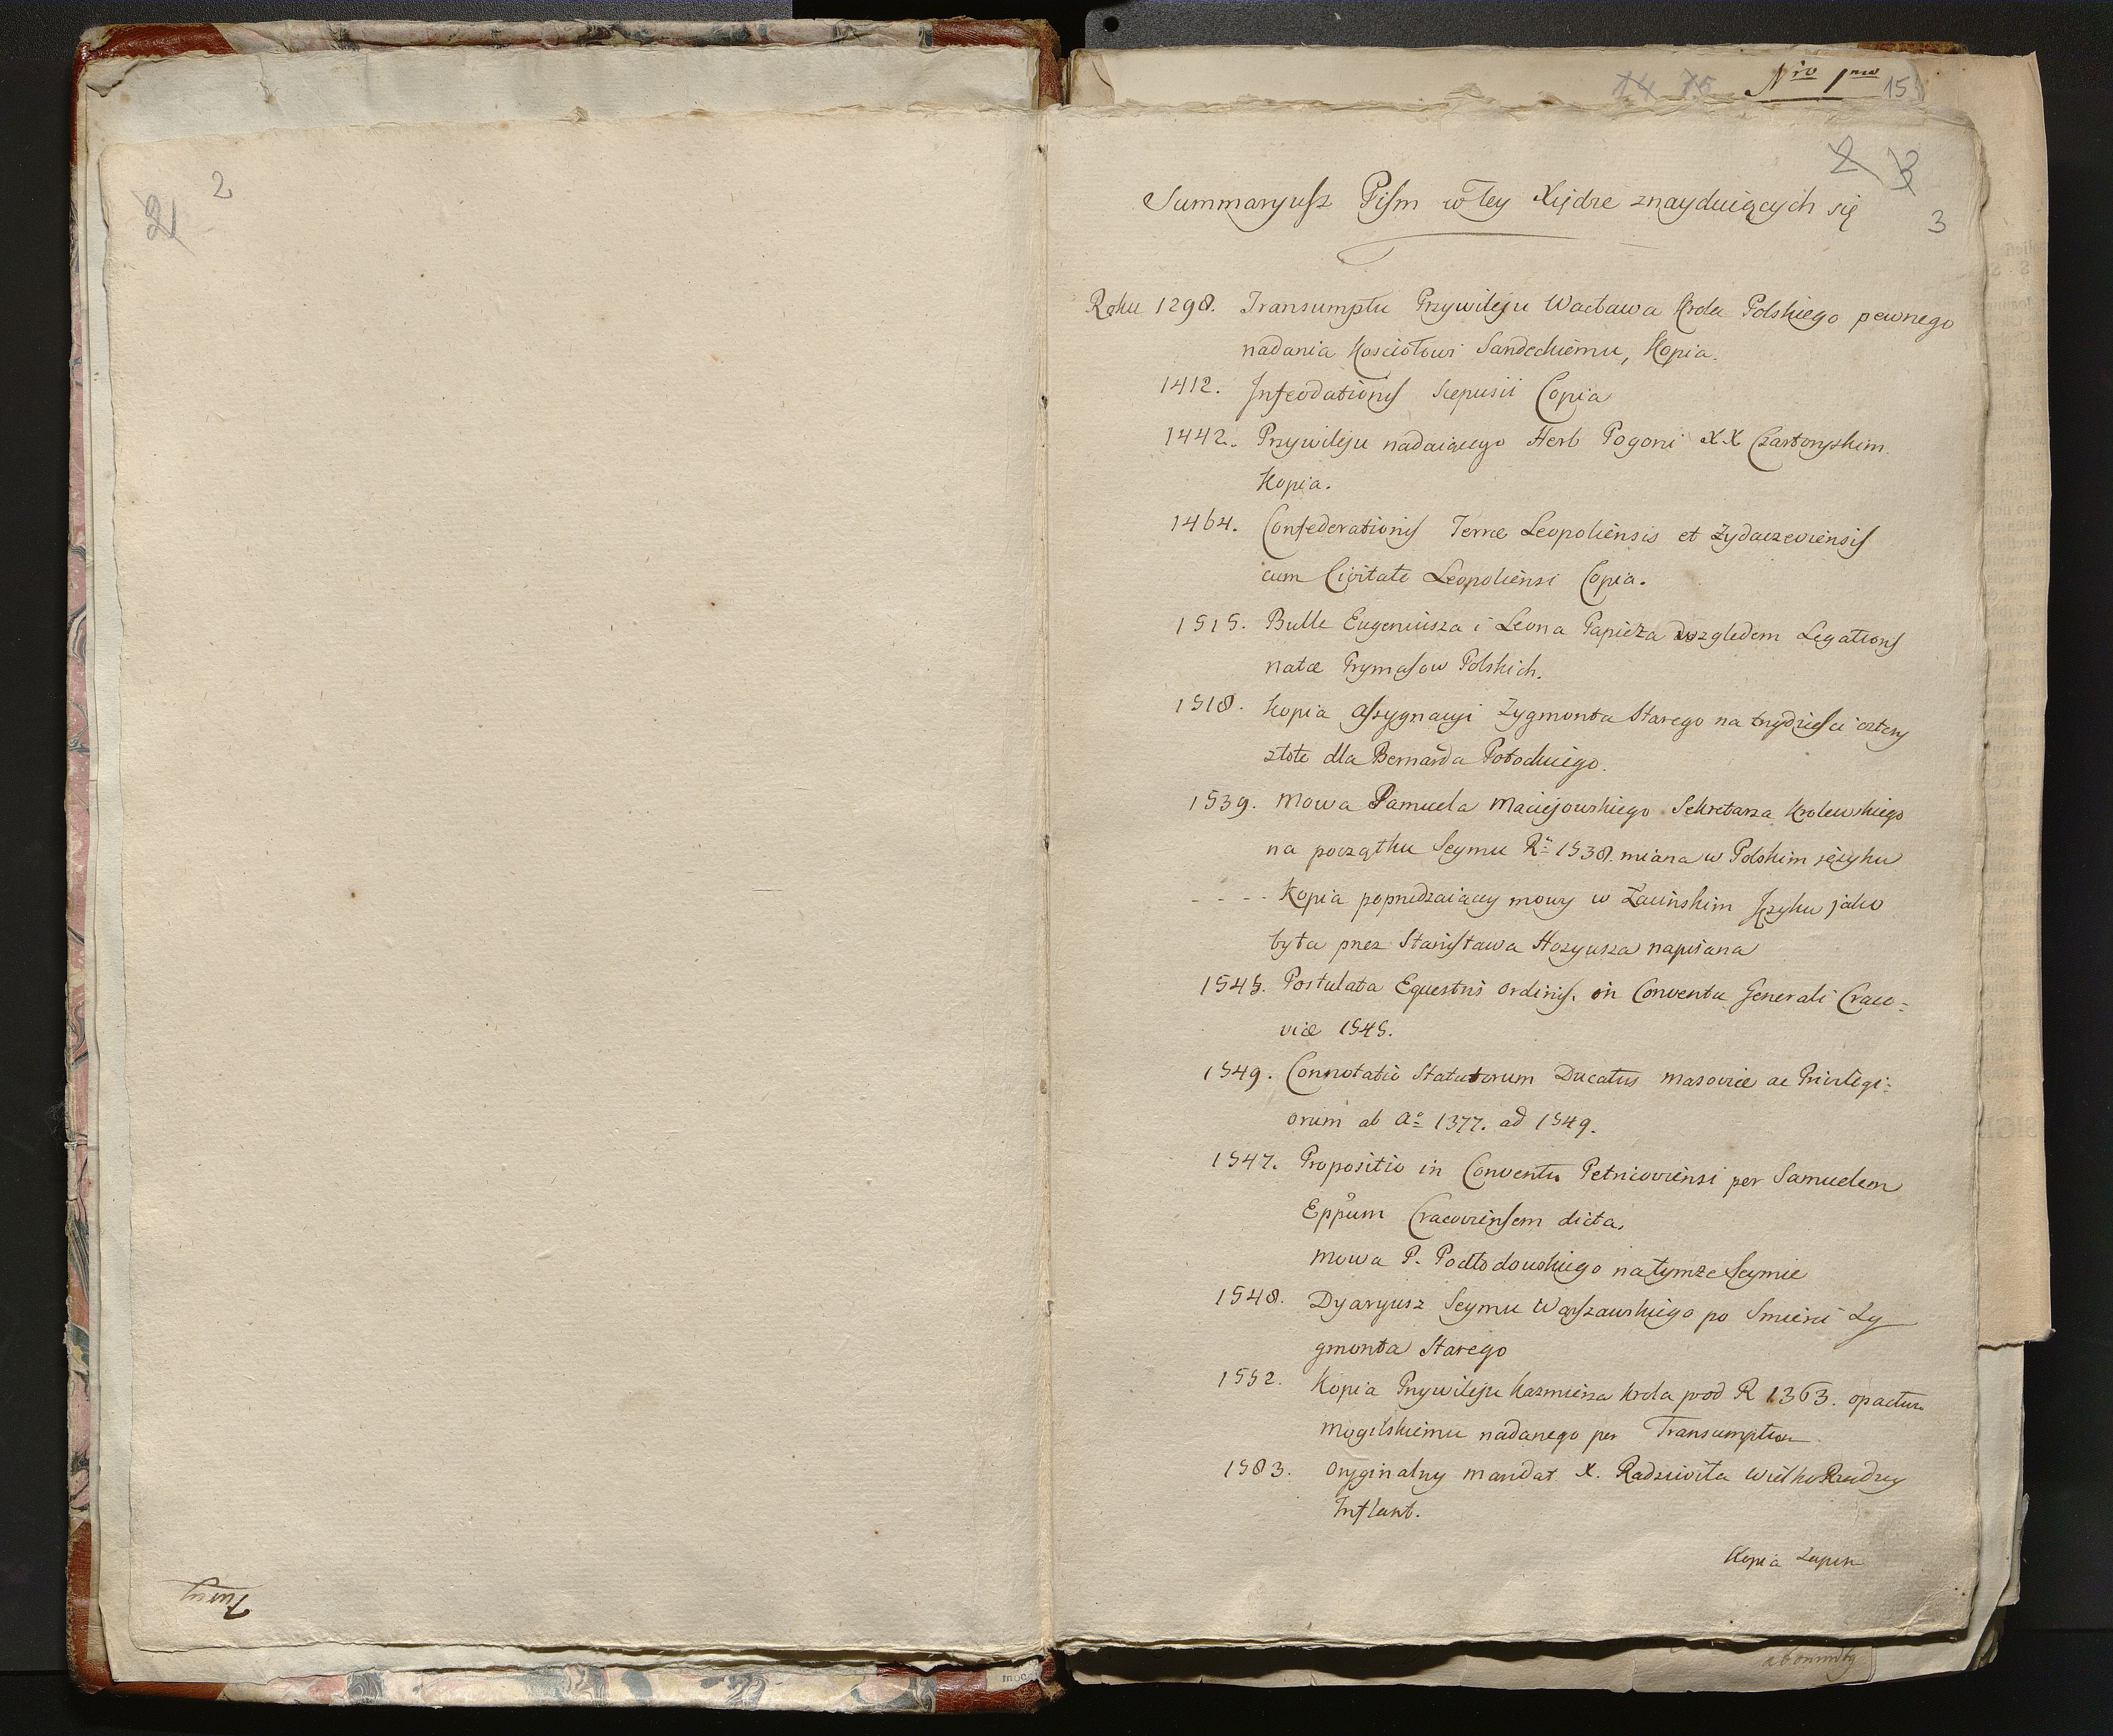 2
21
14 15 Nro 1mo 15
2 3
3
Summaryusz Pism w tey Xiędze znayduiących się
Roku 1298. Transumptu Przywileju Wacława Krola Polskiego pewnego
nadania Kosciołowi Sandeckiemu, Kopia.
1412. Infeodationis Scepusii Copia
1442. Przywileju nadaiącego Herb Pogoni XX Czartoryskim.
Kopia.
1464. Confederationis Terræ Leopoliensis et Zydaczeviensis
cum Civitate Leopoliensi Copia.
1515. Bulle Eugeniusza i Leona Papieża względem Legationis
natæ Prymasow Polskich.
1518. Kopia Assygnacyi Zygmonta Starego na trzydziesci cztery
złote dla Bernarda Potockiego.
1539. Mowa Samuela Maciejowskiego Sekretarza Krolewskiego
na początku Seymu Rº 1538. miana w Polskim języku
- - - - Kopia poprzedzaiącey mowy w Łacinskim Języku jako
była przez Stanisława Hozyusza napisana
1545. Postulata Equestris Ordinis. in Conventu Generali Craco=
viæ 1545.
1549. Connotatio Statutorum Ducatus Masoviæ ac Privilegi=
orum ab Aº 1377. ad 1549.
1547. Propositio in Conventu Petricoviensi per Samuelem
Eppum Cracoviensem dicta.
Mowa P. Podlodowskiego na tymże Seymie
1548. Dyaryusz Seymu Warszawskiego po Smierci Zy
gmonta Starego
1552. Kopia Przywileju Kazmierza Krola pod R 1363. opactwu
Mogilskiemu nadanego per Transumptum
1583. Oryginalny mandat X. Radziwiła Wielko Rządzcy
Inflant.
Kopia